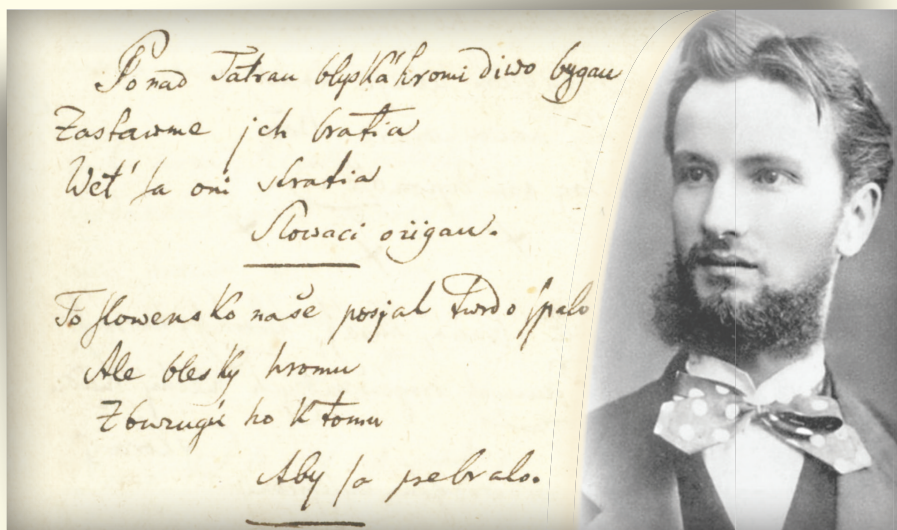 Ponad Tatrau blyská hromi diwo bygau
Zastawme jch bratia
Wet' sa oni stratia
Slowaci ožigau.
To slowensko naše posjal twrdo spalo
Ale blesky hromu
Zburugú ho k tomu
Aby sa prebralo.